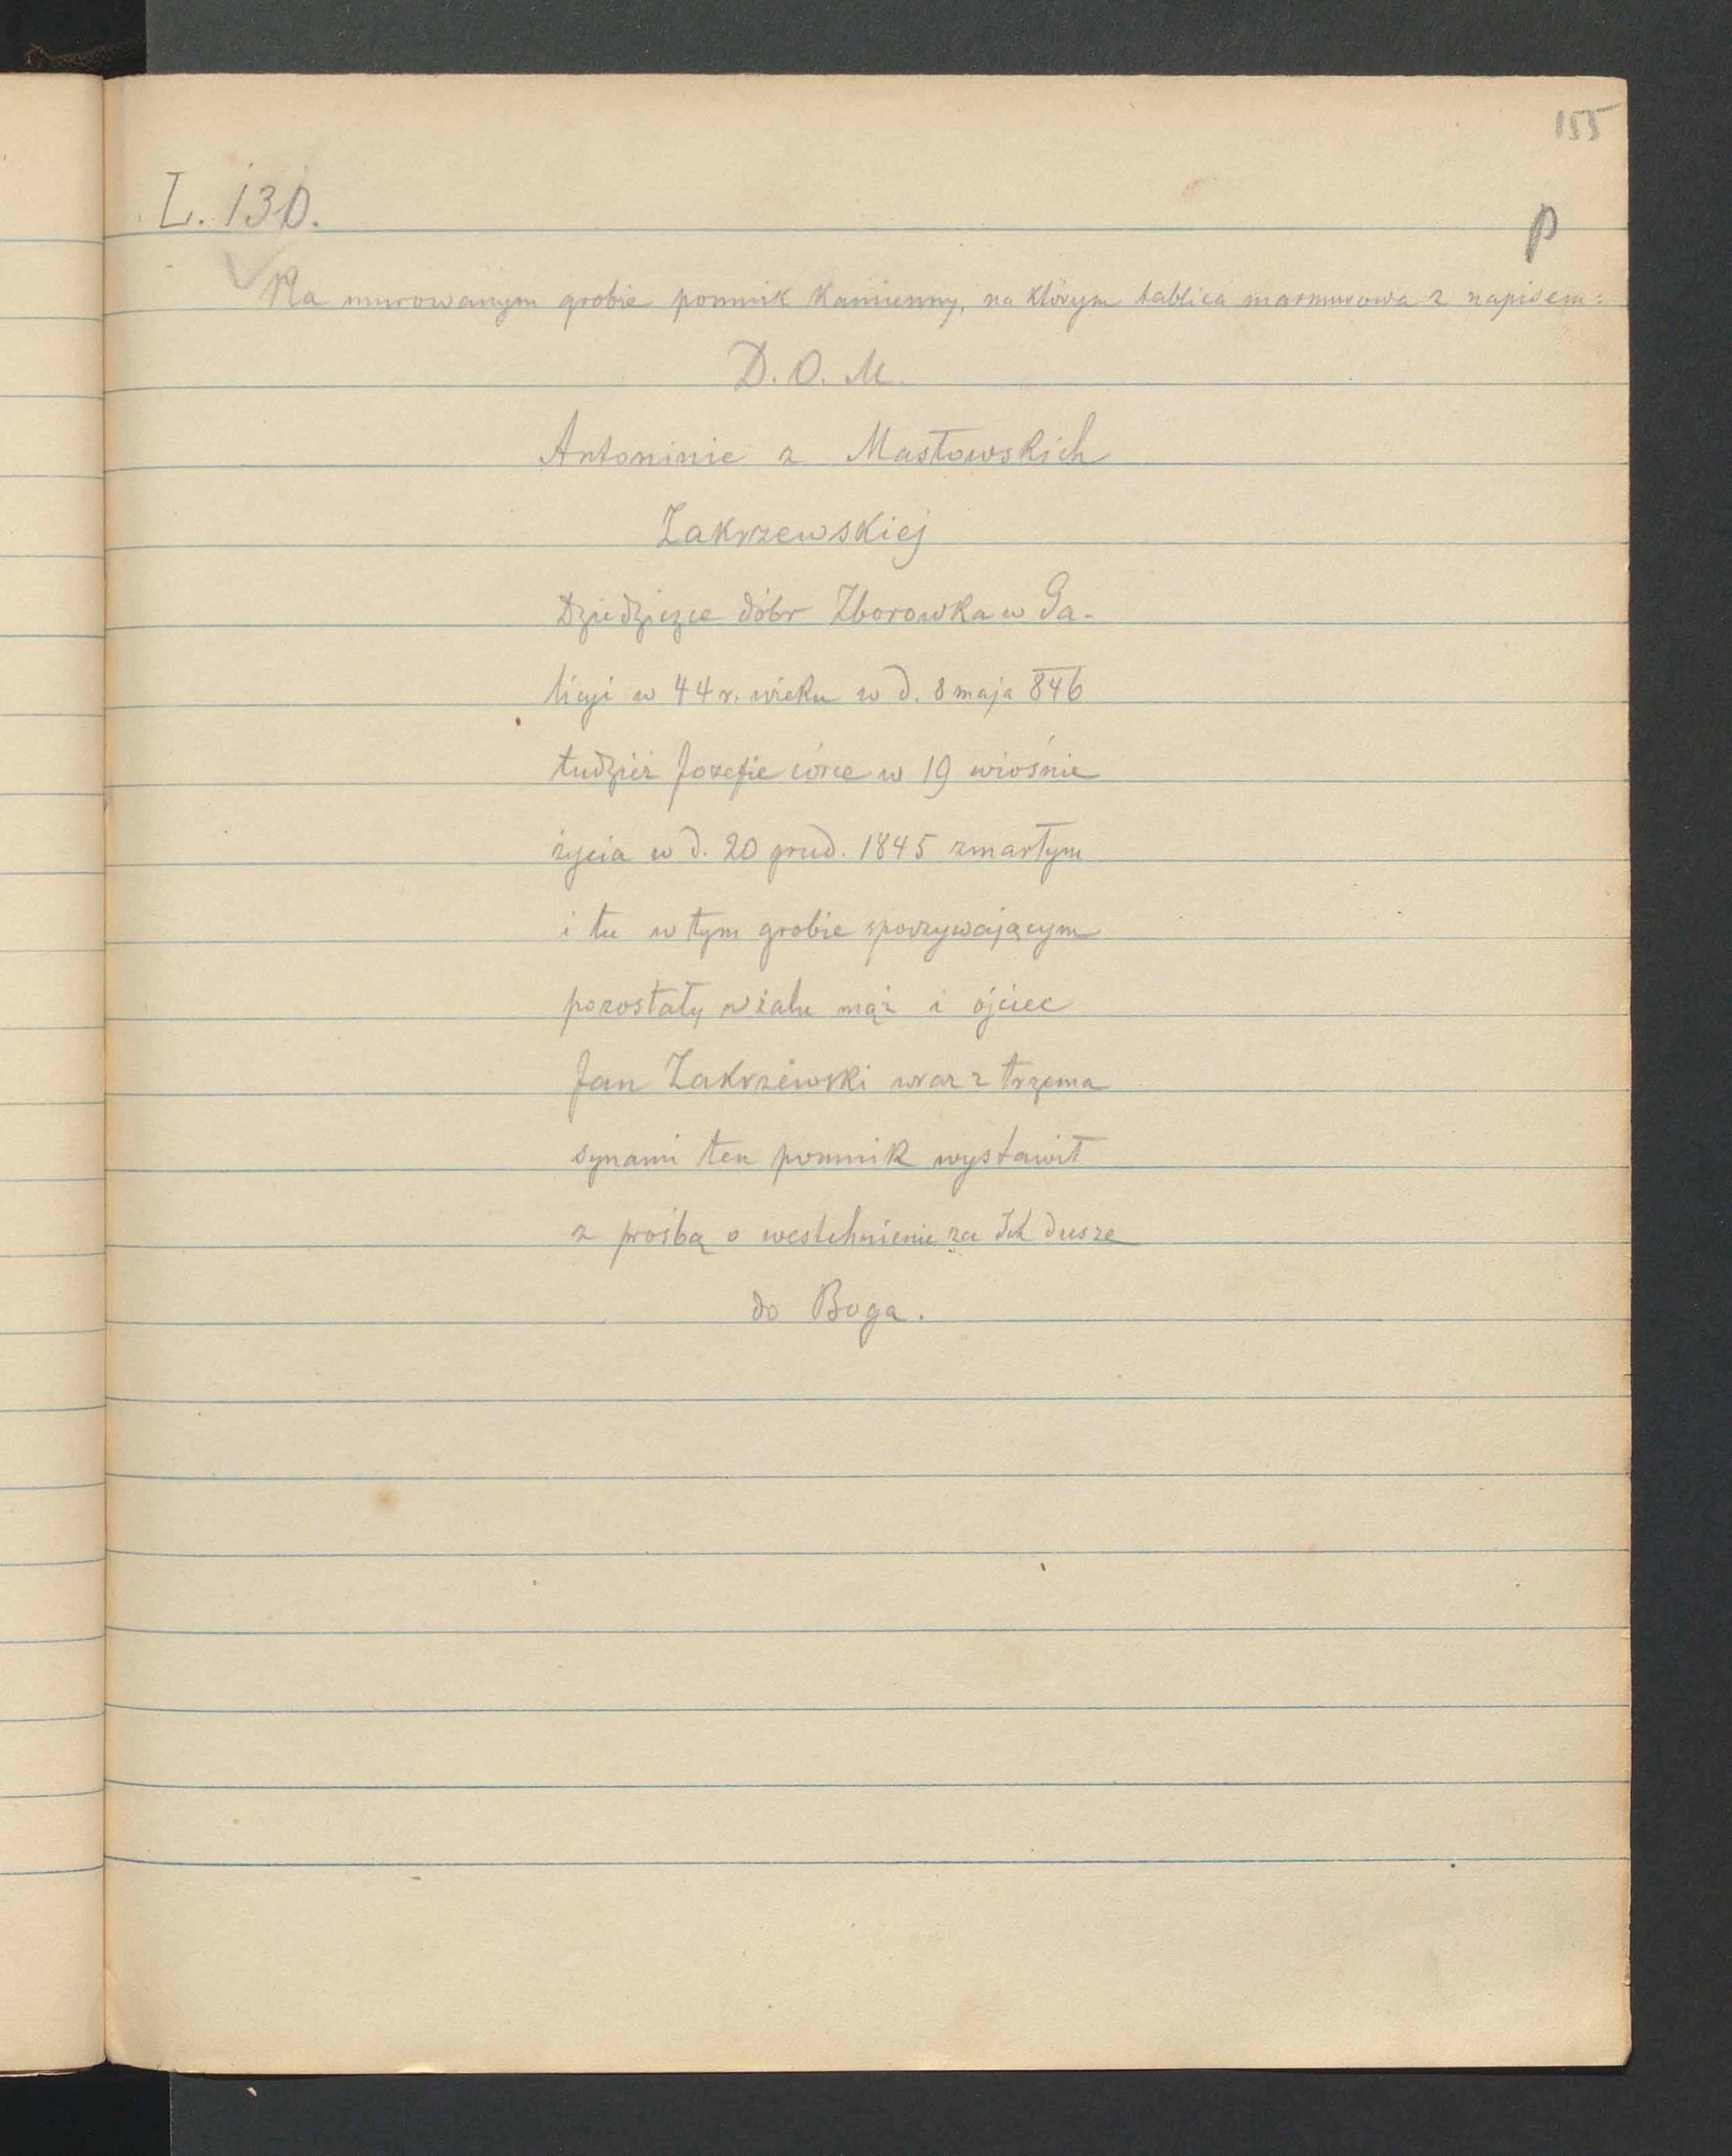 155
L. 130.
p
Na murowanym grobie pomnik kamienny, na którym tablica marmurowa z napisem:
D. O. M.
Antoninie z Masłowskich
Zakrzewskiej
Dziedziczce dóbr Zborowka w Ga-
licyi w 44 r. wieku w d. 8 maja 846
tudzież Jozefie córce w 19 wiośnie
życia w d. 20 grud. 1845 zmarłym
i tu w tym grobie spoczywającym
pozostały w żalu mąż i ojciec
Jan Zakrzewski wraz z trzema
synami ten pomnik wystawił
z prośbą o westchnienie za Ich dusze
do Boga.